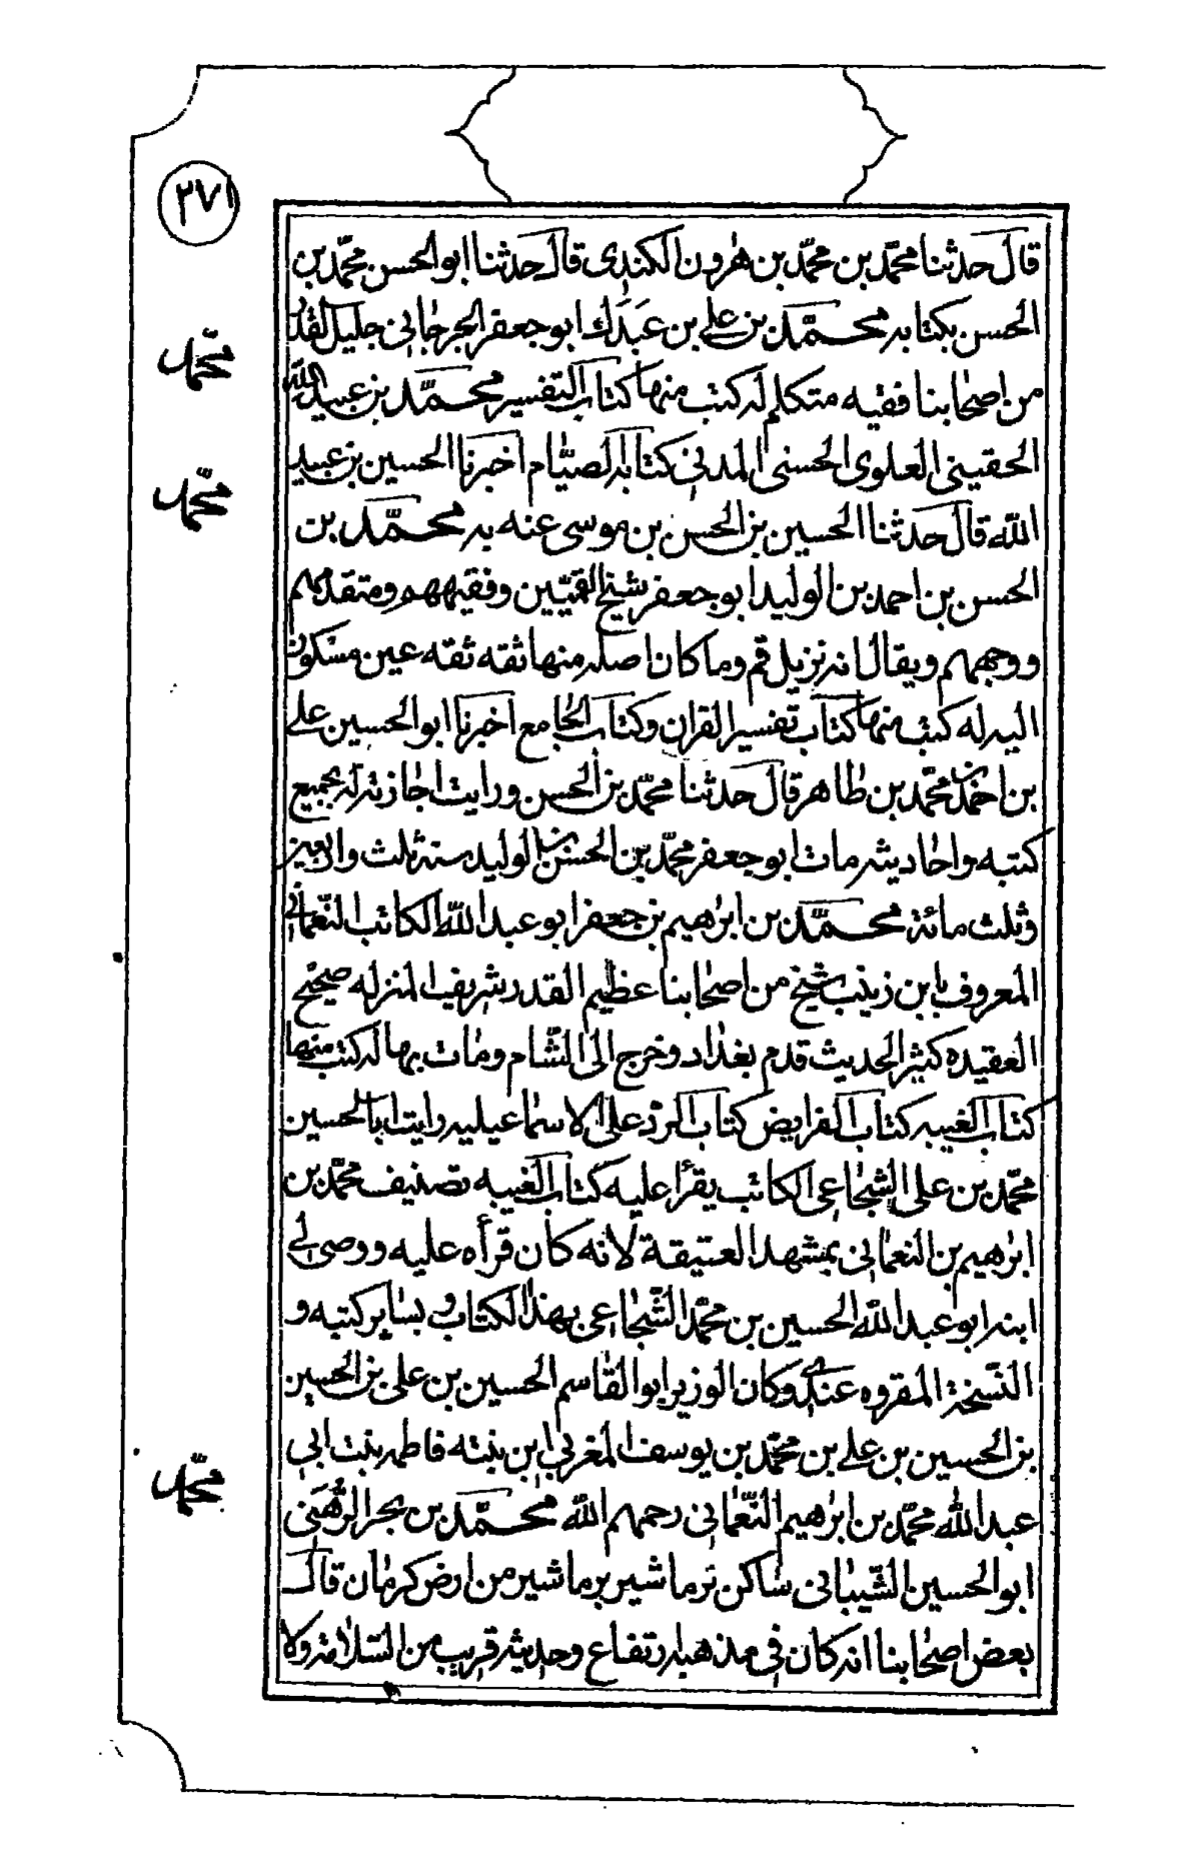 ٢٧١
قال حدثنا محمّد بن محمّد بن هٰرون الكندى قال حدثنا ابو الحسن محمّد بن
الحسن بكتابه محمّد بن علي بن عَبَدَك ابو جعفر الجرجاني جليل القدر
محمّد
من اصحابنا فقيه متكلم له كتب منها كتاب التفسير محمّد بن عبيد اللّه
الحقيني العلوى الحسنى المدني كتابه الصيّام اخبرنا الحسين بن عبيد
محمّد
اللّه قال حدثنا الحسين بن الحسن بن موسى عنه به محمّد بن
الحسن بن احمد بن الوليد ابو جعفر شيخ القميّين وفقيههم ومتقدمهم
ووجههم ويقال انه نزيل قم وما كان اصله منها ثقه ثقه عين مسكون
اليه له كتب منها كتاب تفسير القران وكتاب الجامع اخبرنا ابو الحسين علي
بن احمد بن محمّد بن طاهر قال حدثنا محمّد بن الحسن ورايت اجازته له بجميع
كتبه واحاديثه مات ابو جعفر محمّد بن الحسن بن الوليد سنه ثلث واربعين
وثلث مائة محمّد بن ابرٰهيم بن جعفر ابو عبد اللّه الكاتب النّعماني
المعروف بابن زينب شيخ من اصحابنا عظيم القدر شريف المنزله صحيح
العقيده كثير الحديث قدم بغداد وخرج الى الشّام ومات بها له كتب منها
كتاب الغيبه كتاب الفرايض كتاب الردّ على الاسماعيليه رايت ابا الحسين
محمّد بن على الشجاعي الكاتب يقرأ عليه كتاب الغيبه تصنيف محمّد بن
ابرٰهيم بن النعماني بمشهد العتيقة لانه كان قرأه عليه ووصى لي
ابنه ابو عبد اللّه الحسين بن محمّد الشّجاعي بهذا الكتاب و بساير كتبه و
النّسخة المقروه عندي وكان الوزير ابو القاسم الحسين بن على بن الحسين
بن الحسين بن علي بن محمّد بن يوسف المغربي ابن بنته فاطمه بنت ابي
عبد اللّه محمّد بن ابرٰهيم النّعماني رحمهم اللّه محمّد بن بحر الرُّهَنى
محمّد
ابو الحسين الشّيباني ساكن نرماشير برماشير من ارض كرمان قال
بعض اصحابنا انه كان في مذهبه ارتفاع وحديثه قريب من السّلامة ولا